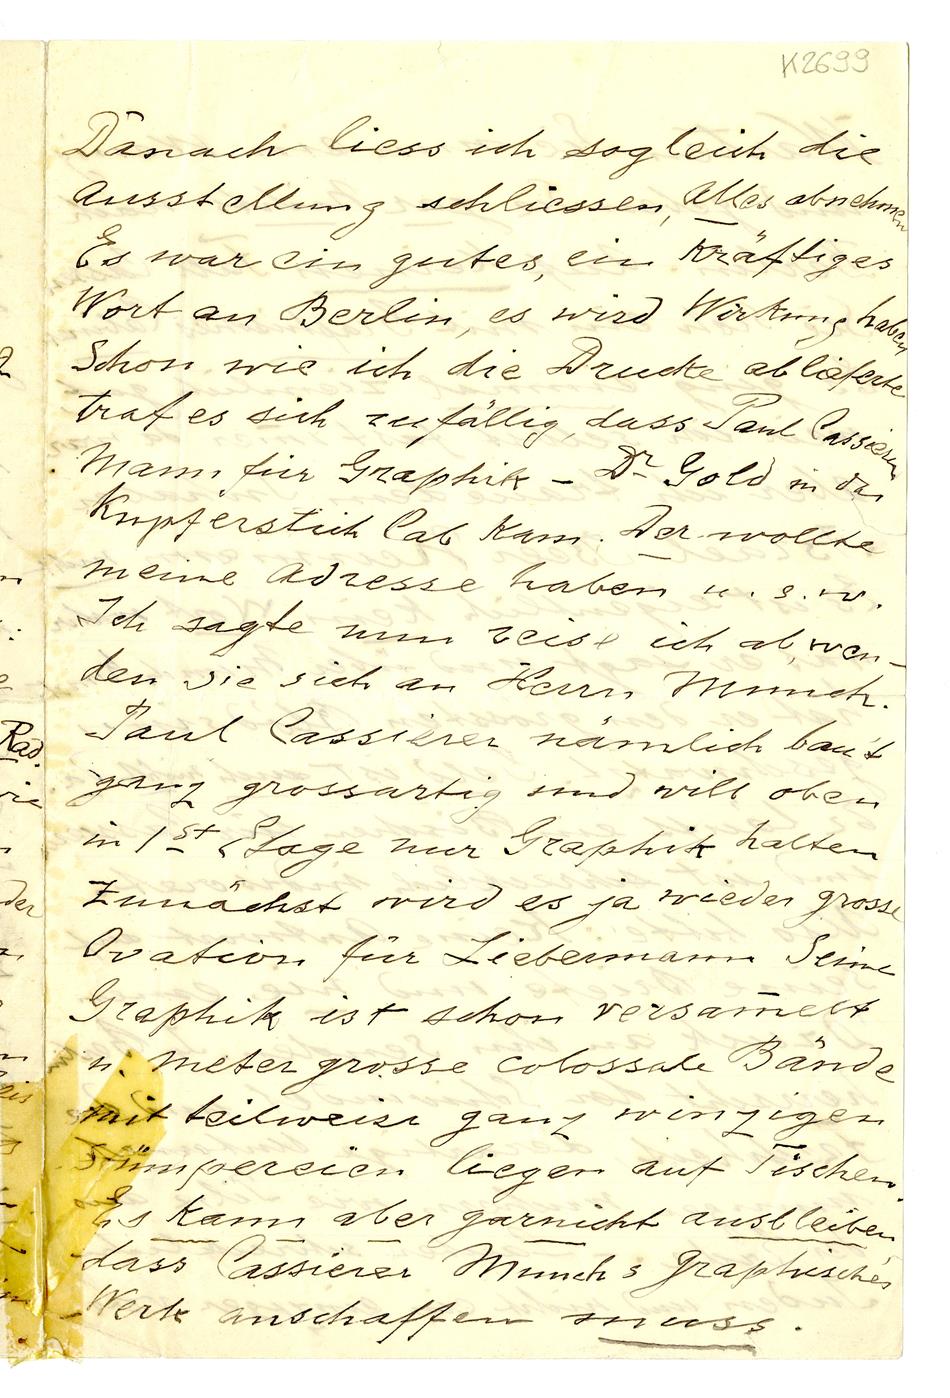 K2699
Danach liess ich sogleich die
Ausstellung schliessen, Alles abnehmen
Es war ein gutes, ein kräftiges
Wort an Berlin, es wird Wirkung haben
Schon wie ich die Drucke ablieferte
traf es sich zufällig, dass Paul Cassierer
Mann für Graphik – Dr Gold in das
Kupferstich Cab kam. Der wollte
meine Adresse haben u. s. w.
Ich sagte nun reise ich ab, wen-
den sie sich an Herrn Munch.
Paul Cassierer nämlich baut
ganz grossartig und will oben
in 1st Etage nur Graphik halten
Zunächst wird es ja wieder grosse
Ovation für Liebermann Seine
Graphik ist schon versam̅elt
u. meter grosse colossale Bände
mit teilweise ganz winzigen
Stümpereien liegen auf Tischen.
Es kann aber garnicht ausbleiben,
dass Cassierer Munchs graphisches
Werk anschaffen muss.
Rad.
der